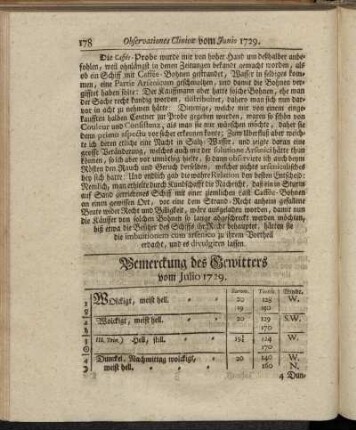 178 Observationes Clinicæ vom Junio 1729.
Die Caffée-Probe wurde mir von hoher Hand um deßhalber anbe-
fohlen, weil ohnlängst in denen Zeitungen bekandt gemacht worden, als
ob ein Schiff mit Caffée-Bohnen gestrandet, Wasser in selbiges kom-
men, eine Partie Arsenicum geschmoltzen, und damit die Bohnen ver-
gifftet haben solte: Der Kauffmann aber hatte solche Bohnen, ehe man
der Sache recht kundig worden, distrahiret, dahero man sich nun dar-
vor in acht zu nehmen hätte: Diejenige, welche mir von einem einge-
kaufften halben Centner zur Probe gegeben wurden, waren so schön von
Couleur und Consistenz, als man sie nur wünschen möchte, daher sie
denn primo aspectu vor sicher erkennen konte; Zum Überfluß aber weich-
te ich deren etliche eine Nacht in Saltz-Wasser, und zeigte daran eine
grosse Veränderung, welches auch mit der solutione Arsenici hätte thun
können, so ich aber vor unnöthig hielte, so dann observirte ich auch beym
Rösten den Rauch und Geruch derselben, welcher nichts arsenicalisches
bey sich hatte: Und endlich gab die wahre Relation den besten Entscheid:
Nemlich, man erhielte durch Kundschafft die Nachricht, daß ein in Sturm
auf Sand gerathenes Schiff mit einer ziemlichen Last Caffée-Bohnen
an einen gewissen Ort, vor eine dem Strand-Recht anheim gefallene
Beute wider Recht und Billigkeit, wäre ausgeladen worden, damit nun
die Käuffer von solchen Bohnen so lange abgeschreckt werden möchten,
biß etwa die Besitzer des Schiffs ihr Recht behauptet, hätten sie
die imbutionem cum arsenico zu ihrem Vortheil
erdacht, und es divulgiren lassen.
Bemerckung des Gewitters
vom Julio 1729.
Wolckigt, meist hell. 20 128 W.
19 150
Wolckigt, meist hell. 20 129 S.W.
170
Hell, still. 19½ 124
170
Dunckel. Nachmittag wolckigt, 20 140 W.
meist hell. 160 N.
4 Dun-